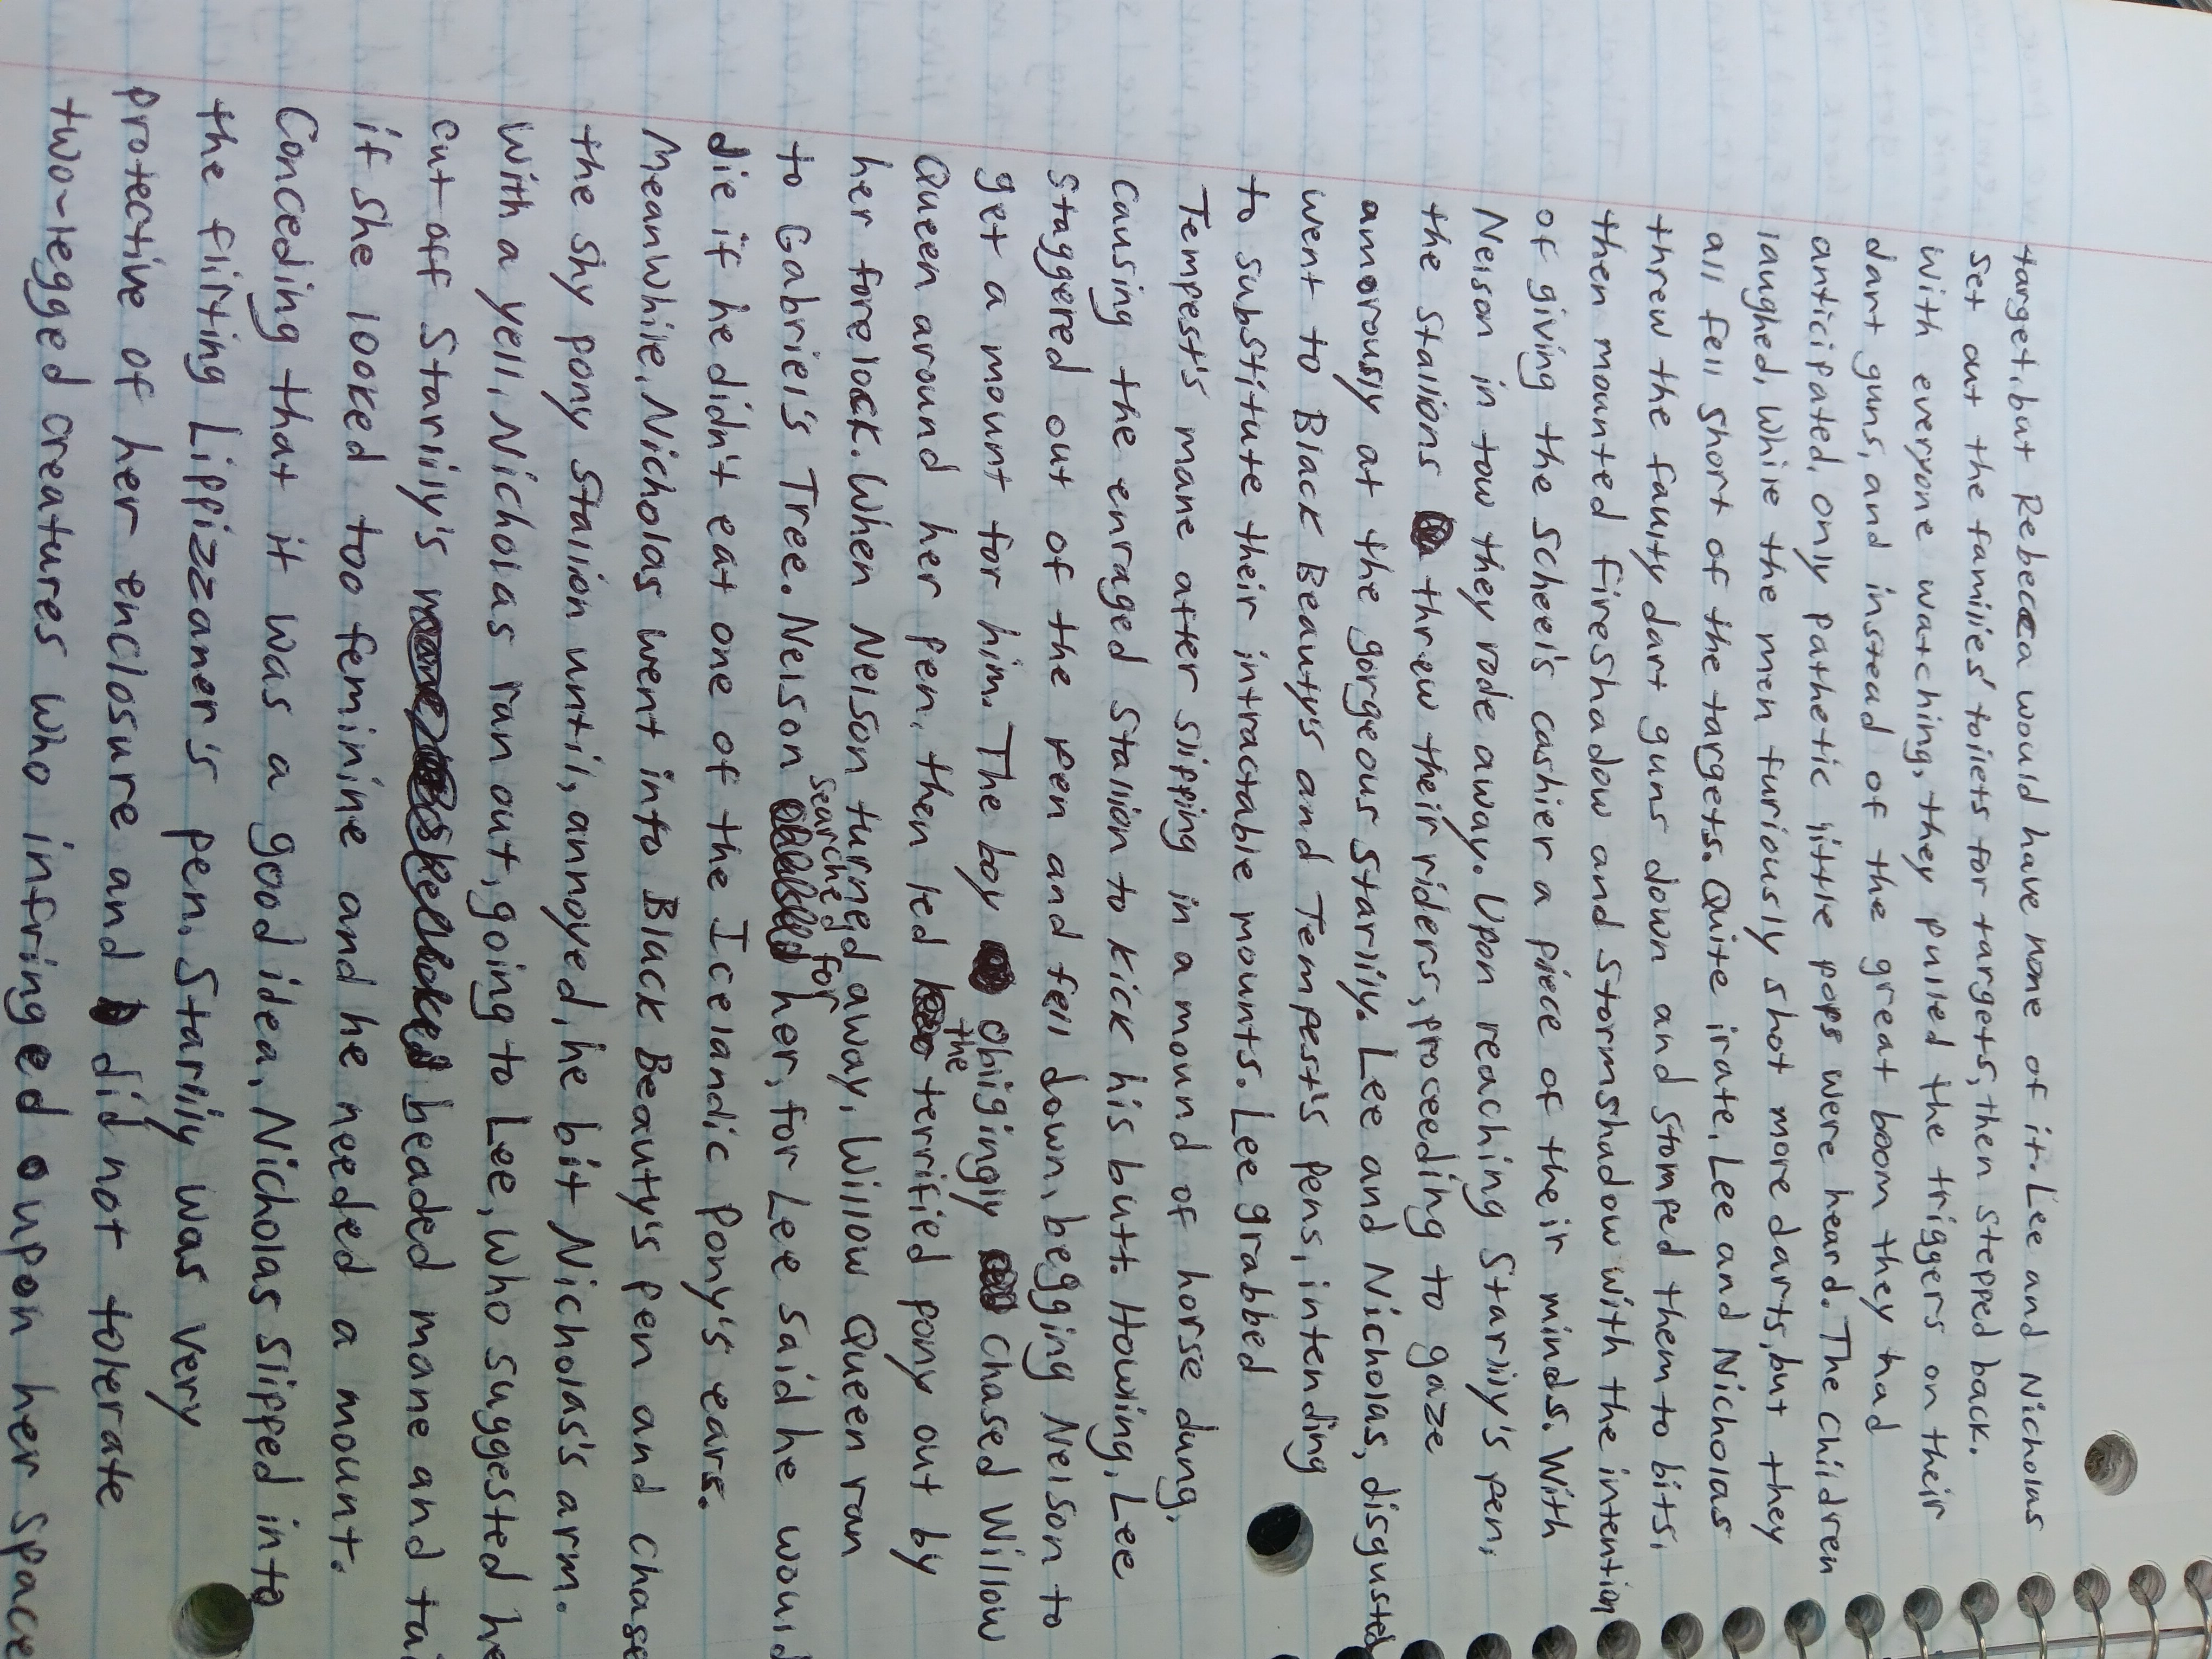 target, but Rebecca would have none of it. Lee and Nicholas
set out the families' toilets for targets, then stepped back.
With everyone watching, they pulled the triggers on their
dart guns, and instead of the great boom they had
anticipated, only pathetic little pops were heard. The children
laughed, while the men furiously shot more darts, but they
all fell short of the targets. Quite irate, Lee and Nicholas
threw the faulty dart guns down and stomped them to bits,
then mounted Fireshadow and Stormshadow with the intention
of giving the Scheel's cashier a piece of their minds. With
Nelson in tow they rode away. Upon reaching Starlily's pen,
the stallions threw their riders, proceeding to gaze
amorously at the gorgeous Starlily. Lee and Nicholas, disgusted,
went to Black Beauty's and Tempest's pens, intending
to substitute their intractable mounts. Lee grabbed
Tempest's mane after slipping in a mound of horse dung,
causing the enraged stallion to kick his butt. Howling, Lee
staggered out of the pen and fell down, begging Nelson to
get a mount for him. The boy obligingly chased Willow
Queen around her pen, then led the terrified pony out by
her forelock. When Nelson turned away, Willow Queen ran
to Gabriel's Tree. Nelson searched for her, for Lee said he would
die if he didn't eat one of the Icelandic Pony's ears.
Meanwhile, Nicholas went into Black Beauty's pen and chase
the shy pony stallion until, annoyed, he bit Nicholas's arm.
With a yell, Nicholas ran out, going to Lee, who suggested he
cut off Starlily's beaded mane and tai
if she looked too feminine and he needed a mount.
Conceding that it was a good idea, Nicholas slipped into
the flirting Lippizzaner's pen. Starlily was very
protective of her enclosure and did not tolerate
two-legged creatures who infringed oupon her space